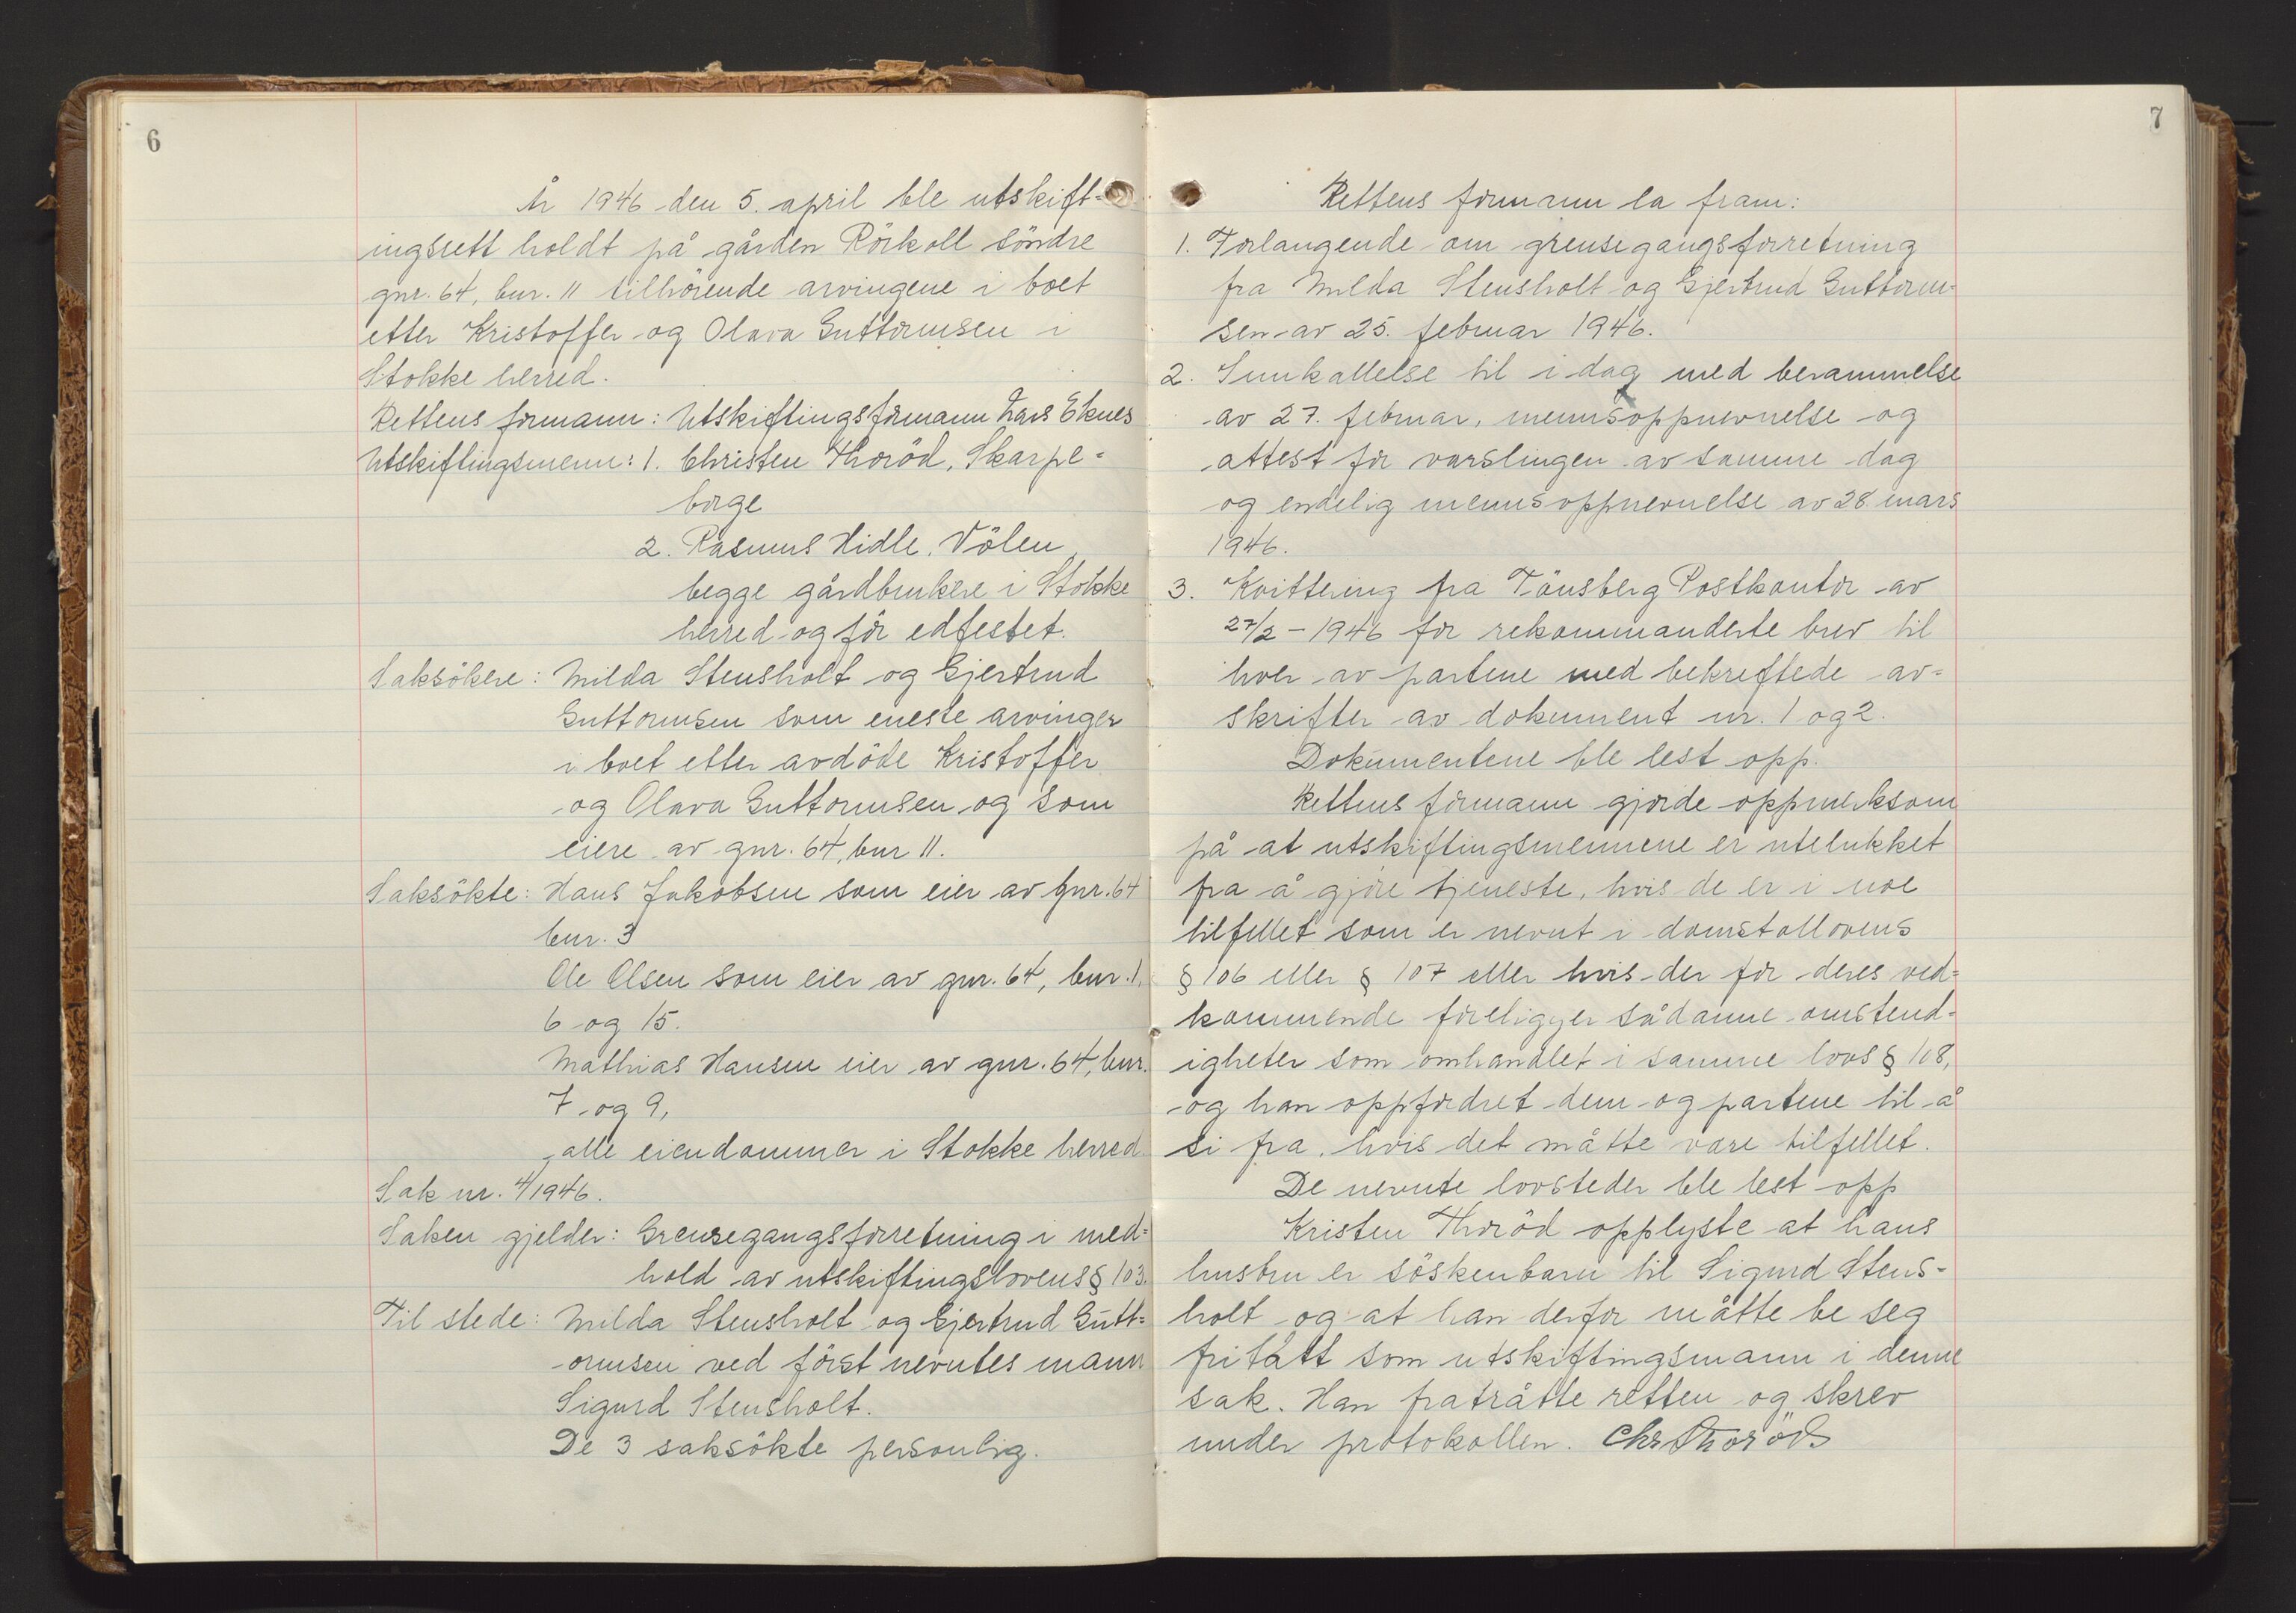 6
År 1946 den 5. april ble utskift=
ingsrett holdt på gården Rörkoll söndre
gnr. 64, bnr. 11 tilhörende arvingene i boet
etter Kristoffer og Olava Guttormsen i
Stokke herred.
Rettens formann: Utskiftingsformann Lars Eknes
Utskiftingsmenn: 1. Christen Thoröd, Skarpe=
borge
2. Rasmus Hidle, Völen,
begge gårdbrukere i Stokke
herred og för edfestet.
Saksökere: Milda Stensholt og Gjertrud
Guttormsen som eneste arvinger
i boet etter avdöde Kristoffer
og Olava Guttormsen og som
eiere av gnr. 64, bnr 11.
Saksökte: Hans Jakobsen som eier av gnr. 64
bnr. 3
Ole Olsen som eier av gnr. 64, bnr. 1,
6 og 15.
Mathias Hansen eier av gnr. 64, bnr.
7 og 9,
alle eiendommer i Stokke herred.
Sak nr. 4/1946.
Saken gjelder: Grensegangsforretning i med=
hold av utskiftingslovens § 103.
Til stede: Milda Stensholt og Gjertrud Gutt=
ormsen ved först nevntes mann
Sigurd Stensholt.
De 3 saksökte personlig.
7
Rettens formann la fram:
1. Forlangende om grensegangsforretning
fra Milda Stensholt og Gjertrud Guttorm=
sen av 25. februar 1946.
2. Innkallelse til i dag med berammelse
av 27. februar, mennsoppnevnelse og
attest for varslingen av samme dag
og endelig mennsoppnevnelse av 28. mars
1946.
3. Kvittering fra Tönsberg Postkontor av
27/2 - 1946 for rekommanderte brev til
hver av partene med bekreftede av=
skrifter av dokument nr. 1 og 2.
Dokumentene ble lest opp.
Rettens formann gjorde oppmerksom
på at utskiftingsmennene er utelukket
fra å gjöre tjeneste, hvis de er i noe
tilfellet som er nevnt i domstollovens
§ 106 eller § 107 eller hvis der for deres ved=
kommende foreligger sådanne omstend=
igheter som omhandlet i samme lovs § 108,
og han oppfordret dem og partene til å
si fra, hvis det måtte være tilfellet.
De nevnte lovsteder ble lest opp
Kristen Thoröd opplyste at hans
hustru er söskenbarn til Sigurd Stens=
holt og at han derfor måtte be seg
fritatt som utskiftingsmann i denne
sak. Han fratrådte retten og skrev
under protokollen. Chr Thoröd